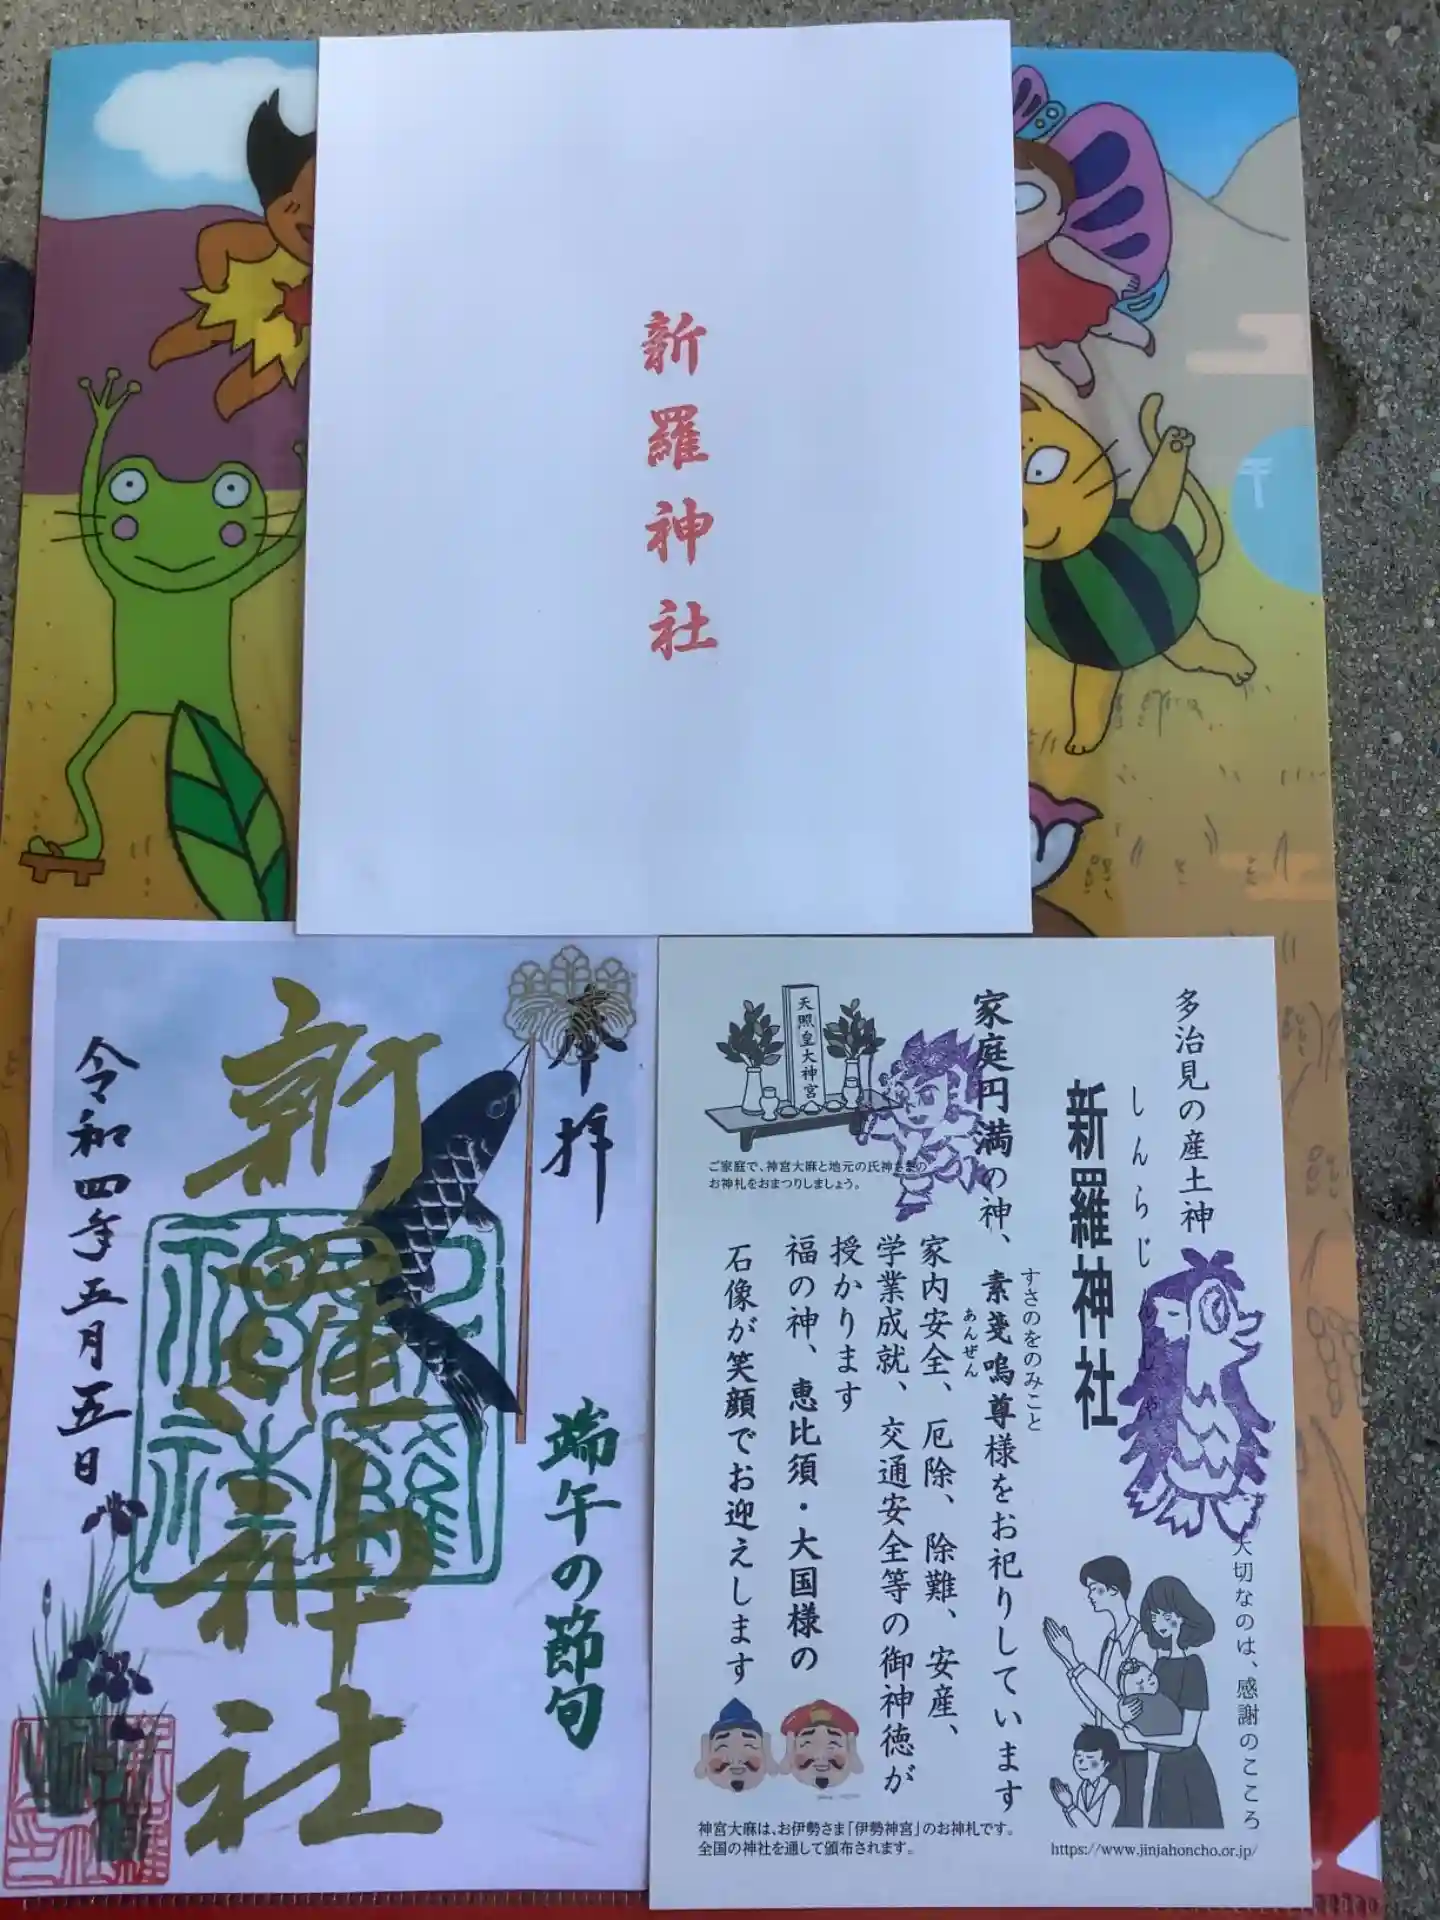 新羅神社
奉拝
端午の節句
新羅神社
令和四年五月五日
多治見の産土神
しんらじんじゃ
新羅神社
家庭円満の神、素戔嗚尊様をお祀りしています
すさのをのみこと
家内安全、厄除、除難、安産、
あんぜん
学業成就、交通安全等の御神徳が
授かります
福の神、恵比須・大国様の
石像が笑顔でお迎えします
天照皇大神宮
ご家庭で、神宮大麻と地元の氏神さまの
お神札をおまつりしましょう。
大切なのは、感謝のこころ
神宮大麻は、お伊勢さま「伊勢神宮」のお神札です。
全国の神社を通して頒布されます。
https://www.jinjahoncho.or.jp/